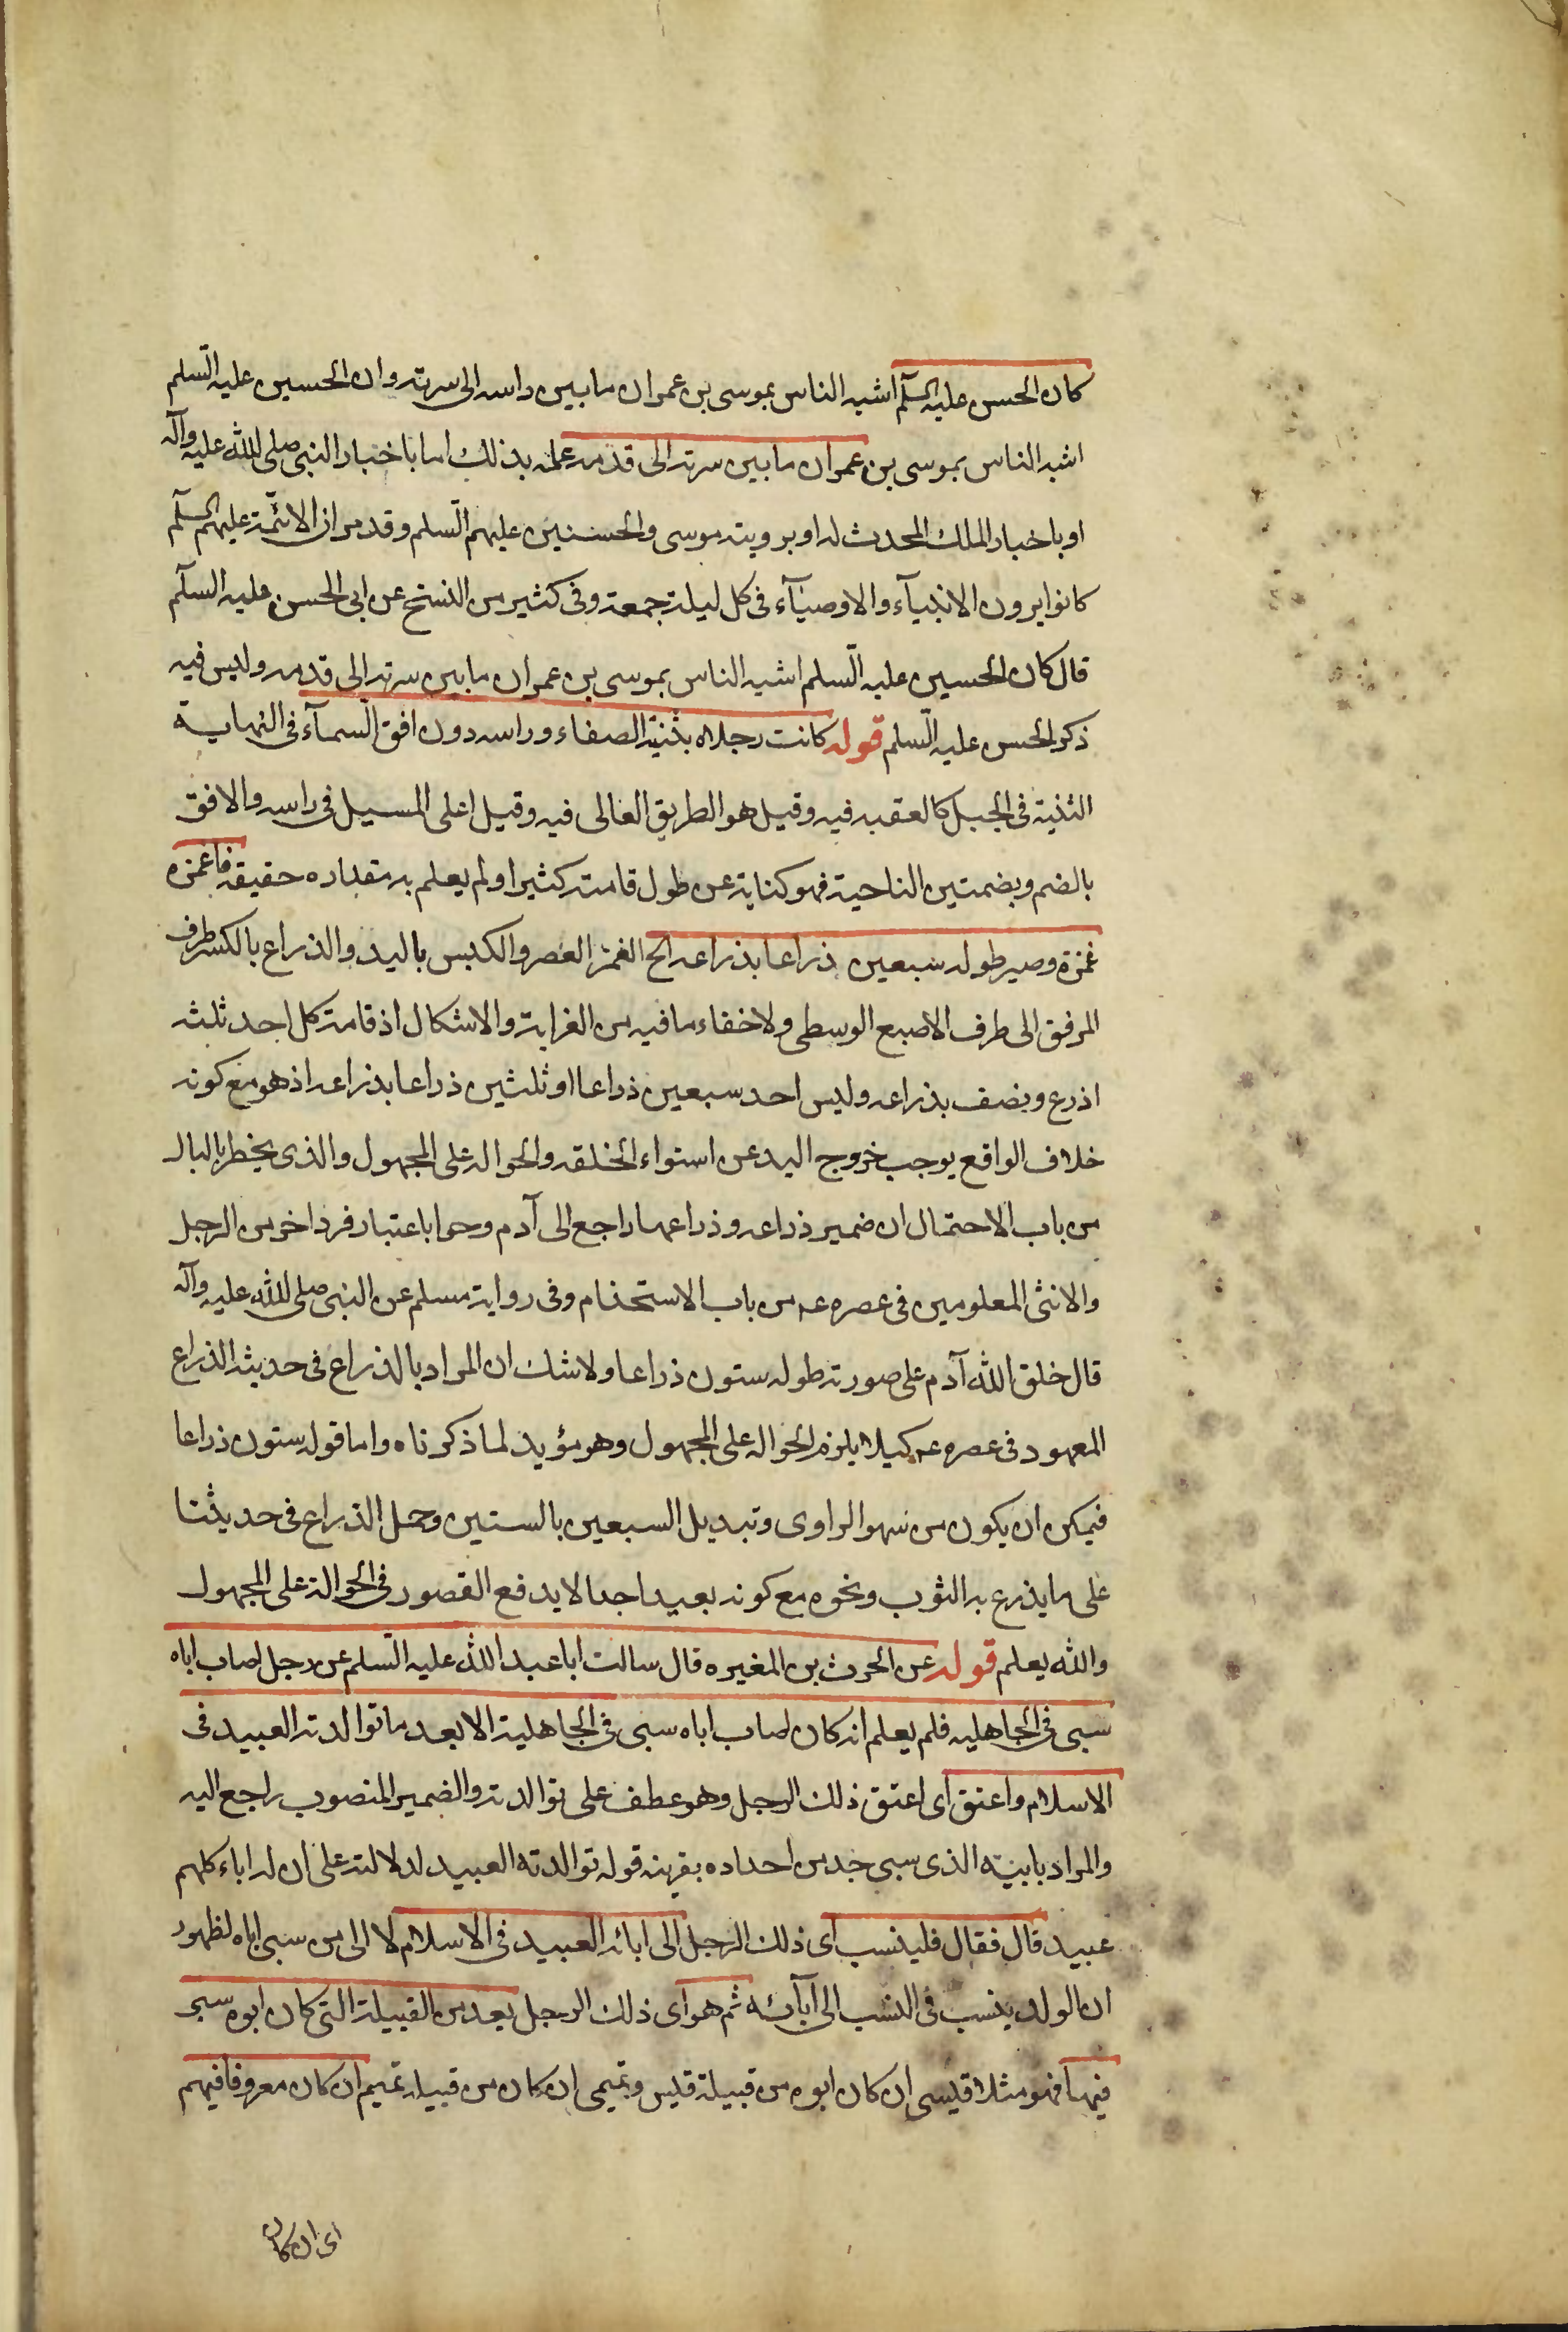 كان الحسن عليه السلم اشبه الناس بموسى بن عمران ما بين راسه الى سرته وان الحسين عليه السّلم
اشبه الناس بموسى بن عمران ما بين سرته الى قدمه علمه بذلك اما باخبار النبي صلى الله عليه وآله
او باخبار الملك المحدث له او برويته موسى والحسنين عليهم السّلم وقد مر ان الائمّة عليهم السلم
كانوا يرون الانبيآء والاوصيآء فى كل ليلة جمعة وفى كثير من النسخ عن ابى الحسن عليه السلم
قال كان الحسين عليه السّلم اشبه الناس بموسى بن عمران ما بين سرته الى قدمه وليس فيه
ذكر الحسن عليه السّلم قوله كانت رجلاه بثنيّة الصفاء وراسه دون افق السمآء فى النهاية
الثنية فى الجبل كالعقبه فيه وقيل هو الطريق العالى فيه وقيل اعلى المسيل فى راسه والافق
بالضم وبضمتين الناحية فهو كناية عن طول قامته كثيرا ولم يعلم به مقداره حقيقة فاغمزه
غمزة وصير طوله سبعين ذراعا بذراعه الخ الغمز العصر والكبس باليد والذراع بالكسر طرف
المرفق الى طرف الاصبع الوسطى ولا خفاء ما فيه من الغرابة والاشكال اذ قامة كل احد ثلثه
اذرع ونصف بذراعه وليس احد سبعين ذراعا او ثلثين ذراعا بذراعه اذ هو مع كونه
خلاف الواقع يوجب خروج اليد عن استواء الخلقه والحواله على المجهول والذى يخطر بالبال
من باب الاحتمال ان ضمير ذراعه وذراعها راجع الى آدم وحوا باعتبار فرد اخر من الرجل
والانثى المعلومين فى عصره عم من باب الاستخدام وفى رواية مسلم عن النبي صلى الله عليه وآله
قال خلق الله آدم على صورته طوله ستون ذراعا ولا شك ان المراد بالذراع فى حديثه الذراع
المعهود فى عصره عم كيلا يلزم الحواله على المجهول وهو مؤيد لما ذكرناه واما قوله ستون ذراعا
فيمكن ان يكون من سهو الراوى وتبديل السبعين بالستين وحمل الذراع فى حديثنا
على ما يذرع به الثوب ونحوه مع كونه بعيدا جدا لا يدفع القصور فى الحوالة على المجهول
والله يعلم قوله عن الحرث بن المغيره قال سالت ابا عبد الله عليه السّلم عن رجل اصاب اباه
سبى فى الجاهليه فلم يعلم انه كان اصاب اباه سبى فى الجاهلية الا بعد ما توالدته العبيد فى
الاسلام واعتق اى اعتق ذلك الرجل وهو عطف على توالدته والضمير المنصوب راجع اليه
والمراد بابيه الذى سبى جد من اجداده بقرينة قوله توالدته العبيد لدلالته على ان له اباء كلهم
عبيد قال فقال فلينسب اى ذلك الرجل الى ابائه العبيد فى الاسلام لا الى من سبى اباه لظهور
ان الولد ينسب فى النسب الى آبائه ثم هو اى ذلك الرجل يعد من القبيلة التى كان ابوه سبى
فيها فهو مثلا قيسى ان كان ابوه من قبيلة قيس وتميمى ان كان من قبيلة تميم ان كان معروفا فيهم
اى ان كان